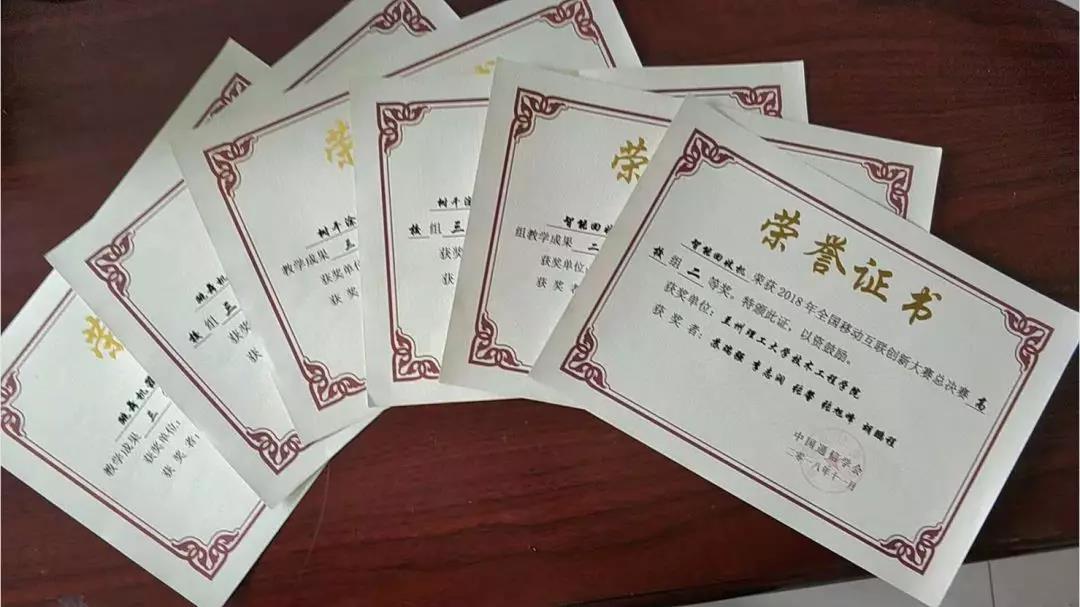 荣誉证书
智能回收机 荣获2018年全国移动互联创新大赛总决赛 高
校 组 二 等奖。特颁此证，以资鼓励。
获奖单位：兰州理工大学技术工程学院
获 奖 者：
中国通信学会
二零一八年十一月
荣
智能回收
组教学成果 二
获奖单位
获 奖 者
树干涂
校 组 三
获奖
获
荣
树干涂
教学成果 三
获奖单位
获 奖
校 组 三
获奖
获
荣
教学成果 三
获奖单位：
获 奖 者：